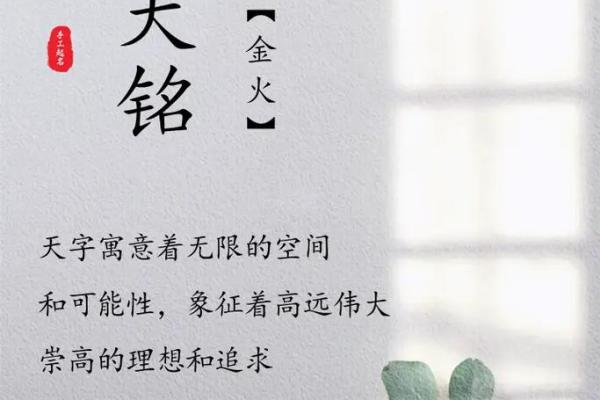 手工起名
天铭
【金火】
天字寓意着无限的空间
和可能性，象征着高远伟大
崇高的理想和追求